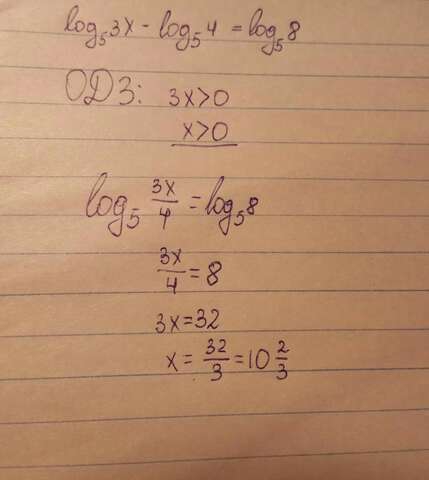 log₅3x - log₅4 = log₅8
ОДЗ: 3x>0
x>0
log₅ 3x/4 = log₅8
3x/4 = 8
3x=32
x = 32/3 = 10 2/3